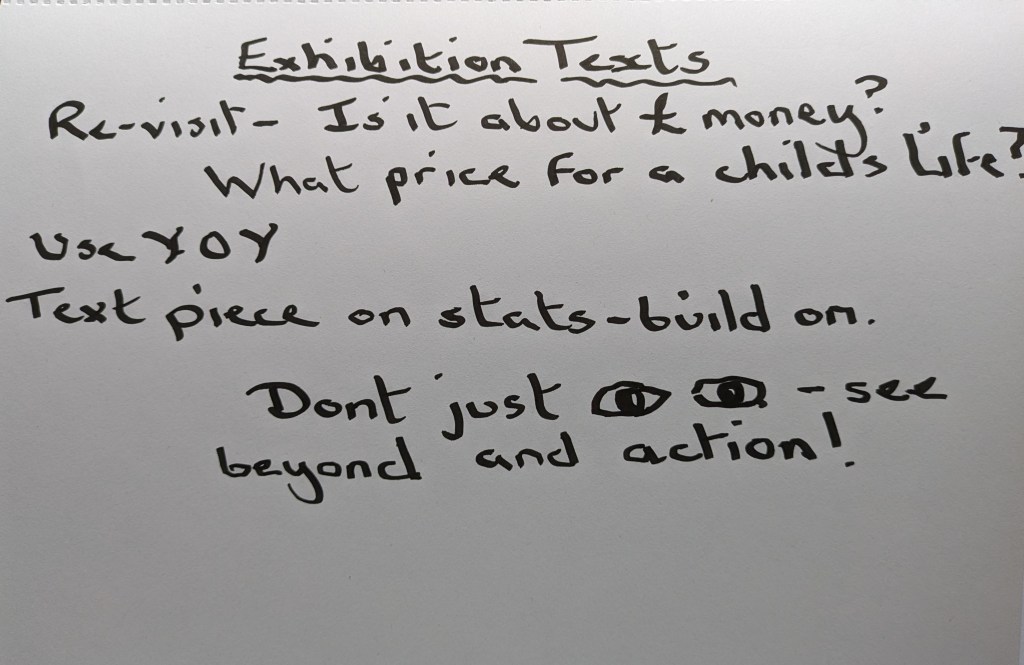 Exhibition Texts
Re-visit- Is it about £ money?
What price for a child's Life?
Use YOY
Text piece on stats-build on.
Dont just - see
beyond and action!